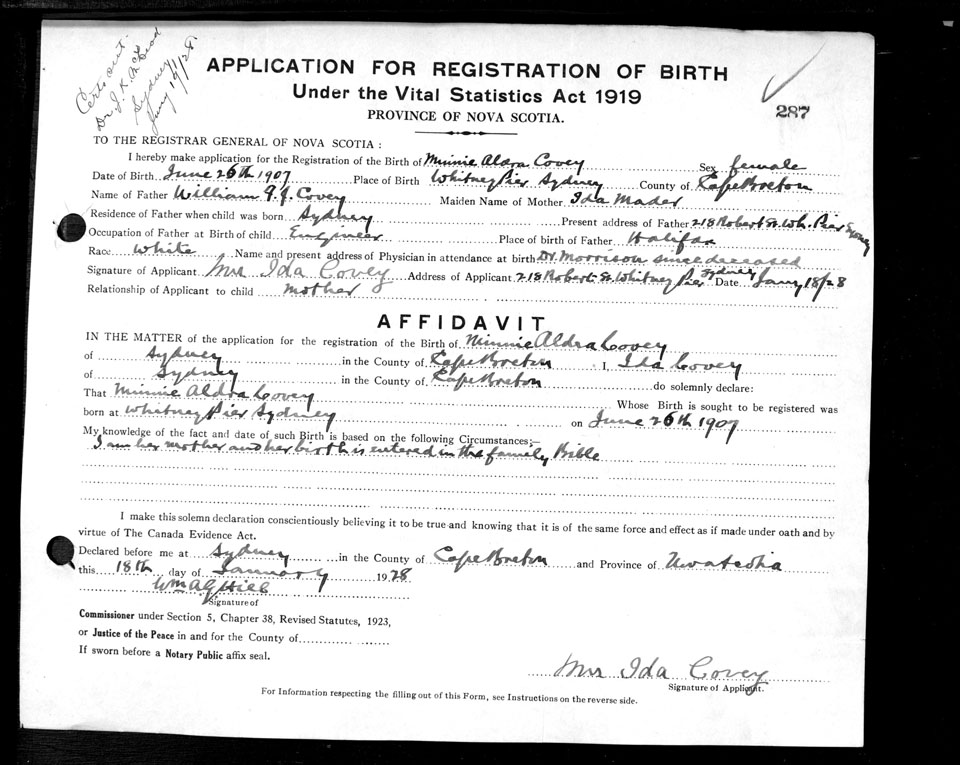 Certs out.
Dr. J. K. McLeod
Sydney
Jany 19/28.
APPLICATION FOR REGISTRATION OF BIRTH
Under the Vital Statistics Act 1919
PROVINCE OF NOVA SCOTIA.
287
TO THE REGISTRAR GENERAL OF NOVA SCOTIA :
I hereby make application for the Registration of the Birth of Minnie Aldra Covey Sex female
Date of Birth June 26th 1907 Place of Birth Whitney Pier Sydney County of Cape Breton
Name of Father William Covey Maiden Name of Mother Ida Mader
Residence of Father when child was born Sydney Present address of Father 218 Robert St. Wh. Pier Sydney
Occupation of Father at Birth of child Engineer Place of birth of Father Halifax
Race White Name and present address of Physician in attendance at birth Dr. Morrison since deceased
Signature of Applicant Mrs Ida Covey Address of Applicant 218 Robert St Whitney Pier Sydney Date Jany 18/28
Relationship of Applicant to child mother
AFFIDAVIT
IN THE MATTER of the application for the registration of the Birth of Minnie Aldra Covey
of Sydney in the County of Cape Breton I, Ida Covey
of Sydney in the County of Cape Breton do solemnly declare:
That Minnie Aldra Covey Whose Birth is sought to be registered was
born at Whitney Pier Sydney on June 26th 1907
My knowledge of the fact and date of such Birth is based on the following Circumstances;—
I am her mother and her birth is entered in the family Bible
I make this solemn declaration conscientiously believing it to be true and knowing that it is of the same force and effect as if made under oath and by
virtue of The Canada Evidence Act.
Declared before me at Sydney in the County of Cape Breton and Province of
this 18th day of January 1928
Wm A G Hill
Signature of
Commissioner under Section 5, Chapter 38, Revised Statutes, 1923,
or Justice of the Peace in and for the County of
If sworn before a Notary Public affix seal.
Mrs Ida Covey
Signature of Applicant.
For Information respecting the filling out of this Form, see Instructions on the reverse side.